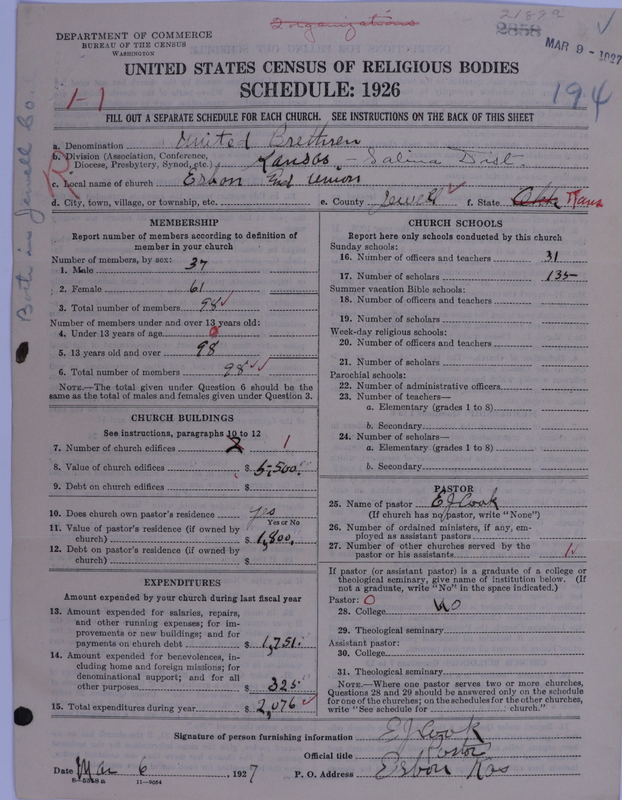 2 organizations
2189a
2858
MAR 9 - 1927
DEPARTMENT OF COMMERCE
BUREAU OF THE CENSUS
WASHINGTON
UNITED STATES CENSUS OF RELIGIOUS BODIES
SCHEDULE: 1926
1-1
194
FILL OUT A SEPARATE SCHEDULE FOR EACH CHURCH. SEE INSTRUCTIONS ON THE BACK OF THIS SHEET
Both in Jewell Co.
a. Denomination United Brethren
b. Division (Association, Conference, Diocese, Presbytery, Synod, etc.) Kansas - Salina Dist.
c. Local name of church Esbon and Union
d. City, town, village, or township, etc. e. County Jewell f. State Kans
MEMBERSHIP
Report number of members according to definition of member in your church
Number of members, by sex:
1. Male 37
2. Female 61
3. Total number of members 98
Number of members under and over 13 years old:
4. Under 13 years of age 0
5. 13 years old and over 98
6. Total number of members 98
NOTE.—The total given under Question 6 should be the same as the total of males and females given under Question 3.
CHURCH BUILDINGS
See instructions, paragraphs 10 to 12
7. Number of church edifices 2 1
8. Value of church edifices $ 5,500.00
9. Debt on church edifices $
10. Does church own pastor's residence yes
Yes or No
11. Value of pastor's residence (if owned by church) $ 1,800.
12. Debt on pastor's residence (if owned by church) $
EXPENDITURES
Amount expended by your church during last fiscal year
13. Amount expended for salaries, repairs, and other running expenses; for improvements or new buildings; and for payments on church debt $ 1,751.
14. Amount expended for benevolences, including home and foreign missions; for denominational support; and for all other purposes $ 325
15. Total expenditures during year $ 2,076
CHURCH SCHOOLS
Report here only schools conducted by this church
Sunday schools:
16. Number of officers and teachers 31
17. Number of scholars 135
Summer vacation Bible schools:
18. Number of officers and teachers
19. Number of scholars
Week-day religious schools:
20. Number of officers and teachers
21. Number of scholars
Parochial schools:
22. Number of administrative officers
23. Number of teachers—
a. Elementary (grades 1 to 8)
b. Secondary
24. Number of scholars—
a. Elementary (grades 1 to 8)
b. Secondary
PASTOR
25. Name of pastor E J Cook
(If church has no pastor, write "None")
26. Number of ordained ministers, if any, employed as assistant pastors
27. Number of other churches served by the pastor or his assistants 1
If pastor (or assistant pastor) is a graduate of a college or theological seminary, give name of institution below. (If not a graduate, write "No" in the space indicated.)
Pastor: 0
28. College No
29. Theological seminary
Assistant pastor:
30. College
31. Theological seminary
NOTE.—Where one pastor serves two or more churches, Questions 28 and 29 should be answered only on the schedule for one of the churches; on the schedules for the other churches, write "See schedule for church."
Signature of person furnishing information E J Cook
Official title Pastor
Date Mar 6, 1927 P. O. Address Esbon Kas
8-5358a 11-9064